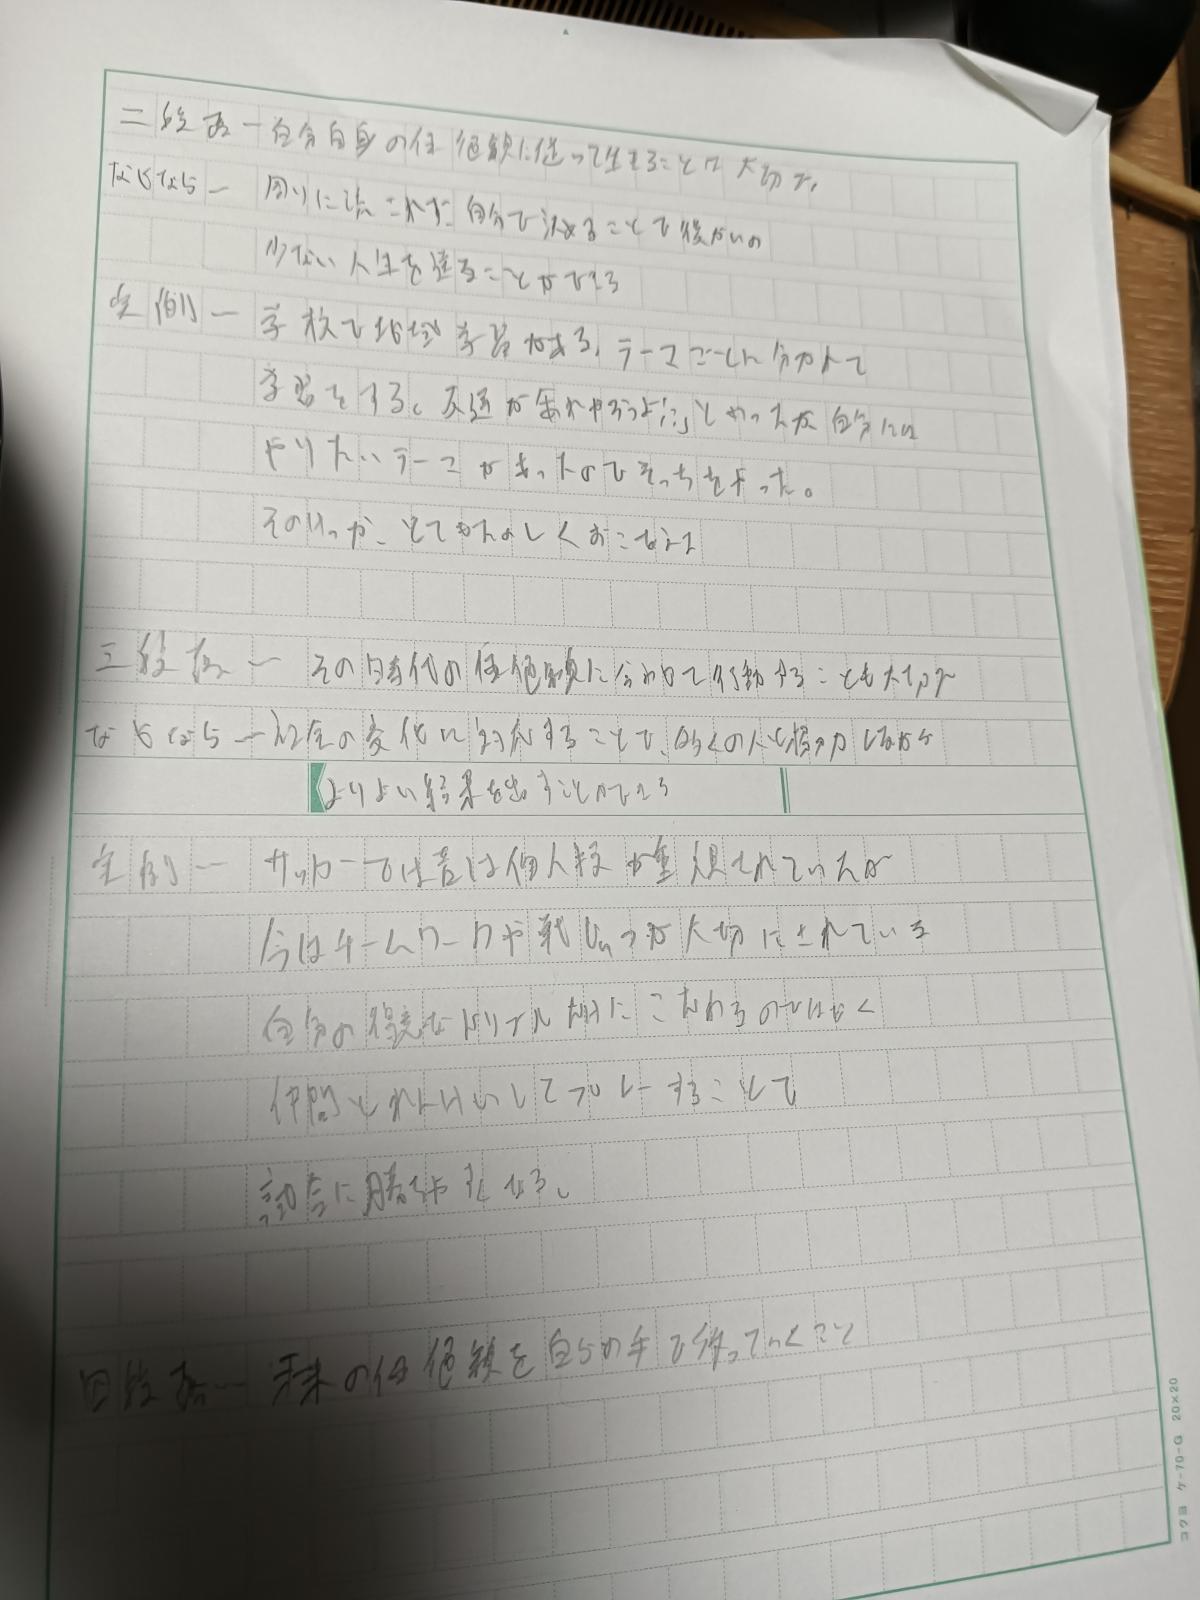 二段落ー自分自身の価値観に従って生きることは大切だ。
なぜならー周りに流こわれず自分で決めることで後かいの
少ない人生を送ることができる
実例ー学校で地域学習がある。テーマごとに分かれて
学習をする。友達が「あれやろうよ」とやったが自分には
やりたいテーマがあったのでそっちをやった。
そのけっか、とてもたのしくおこなえた
三段落ーその時代の価値観に合わせて行動することも大切だ
なぜならー社会の変化に対応することで、多くの人と協力しながら
よりよい結果を出すことができる
実例ーサッカーでは昔は個人技が重視されていたが
今はチームワークや戦じゅつが大切にされている
自分の得意なドリブルだけにこだわるのではなく
仲間とれんけいしてプレーすることで
試合に勝ちやすくなる。
四段落ー未来の価値観を自らの手で作っていくこと
コクヨ ケ-70-G 20×20